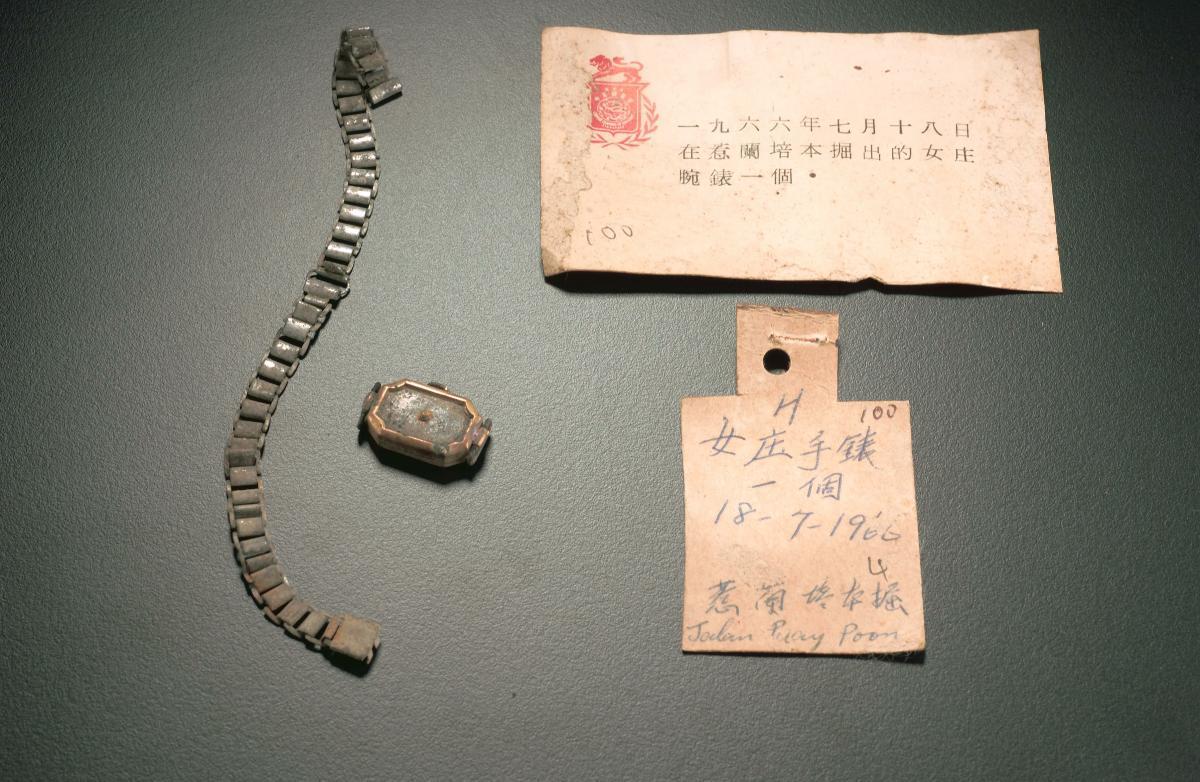 一九六六年七月十八日
在惹蘭培本掘出的女庄
腕錶一個．
100
H
100
女庄手錶
一個
18-7-1966
4
惹蘭培本掘
Jalan Puay Poon